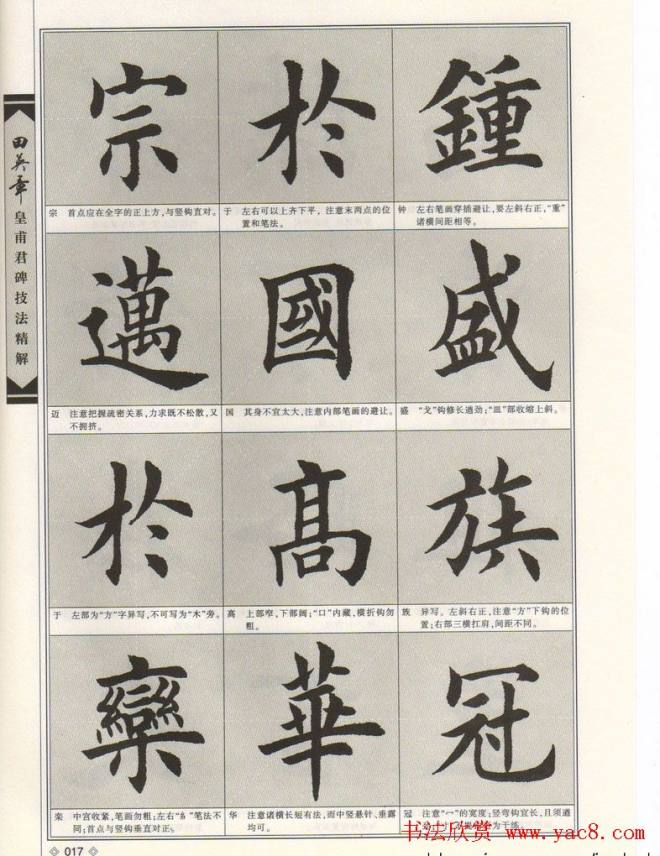 田英章
皇甫君碑技法精解
鍾
於
宗
钟 左右笔画穿插避让,要左斜右正,“重”
诸横间距相等。
于 左右可以上齐下平,注意末两点的位
置和笔法。
宗 首点应在全字的正上方,与竖钩直对。
盛
國
邁
盛 “戈”钩修长遒劲;“皿”部收缩上斜。
国 其身不宜太大,注意内部笔画的避让。
迈 注意把握疏密关系,力求既不松散,又
不拥挤。
族
高
於
族 异写。左斜右正,注意“方”下钩的位
置;右部三横扛肩,间距不同。
高 上部窄,下部阔;“口”内藏,横折钩勿
粗。
于 左部为“方”字异写,不可写为“木”旁。
冠
華
欒
冠 注意“冖”的宽度;竖弯钩宜长,且须遒
华 注意诸横长短有法,而中竖悬针、垂露
均可。
栾 中宫收紧,笔画勿粗;左右“糹”笔法不
同;首点与竖钩垂直对正。
书法欣赏 www.yac8.com
017